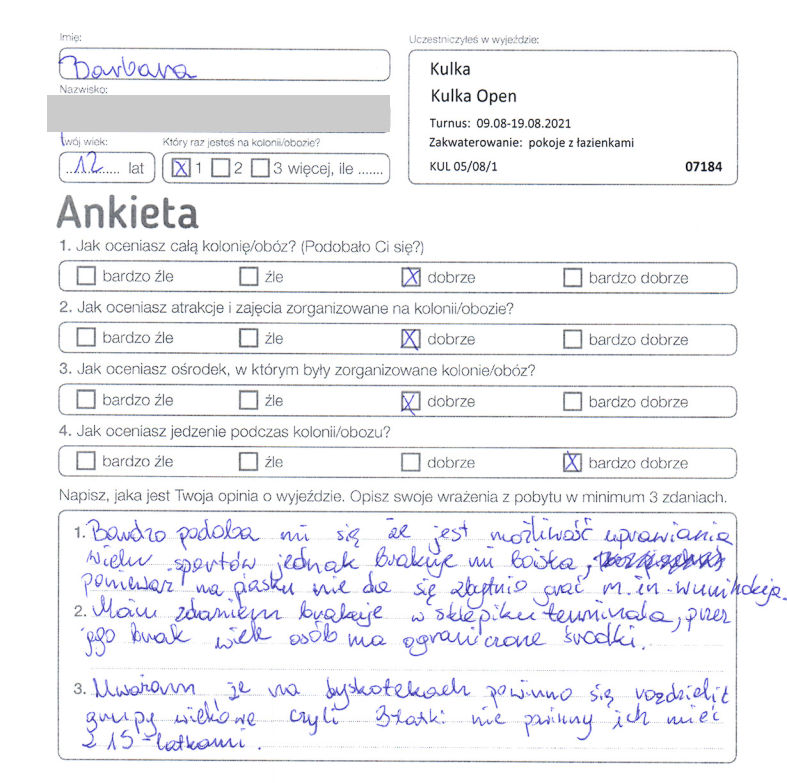 Imię:
Barbara
Nazwisko:
Twój wiek:
12 lat
Który raz jesteś na kolonii/obozie?
X 1 2 3 więcej, ile .......
Uczestniczyłeś w wyjeździe:
Kulka
Kulka Open
Turnus: 09.08-19.08.2021
Zakwaterowanie: pokoje z łazienkami
KUL 05/08/1 07184
Ankieta
1. Jak oceniasz całą kolonię/obóz? (Podobało Ci się?)
bardzo źle źle X dobrze bardzo dobrze
2. Jak oceniasz atrakcje i zajęcia zorganizowane na kolonii/obozie?
bardzo źle źle X dobrze bardzo dobrze
3. Jak oceniasz ośrodek, w którym były zorganizowane kolonie/obóz?
bardzo źle źle X dobrze bardzo dobrze
4. Jak oceniasz jedzenie podczas kolonii/obozu?
bardzo źle źle dobrze X bardzo dobrze
Napisz, jaka jest Twoja opinia o wyjeździe. Opisz swoje wrażenia z pobytu w minimum 3 zdaniach.
1. Bardzo podoba mi się że jest możliwość uprawiania
wielu sportów jednak brakuje mi boiska,
ponieważ na piasku nie da się zbytnio grać m.in. w unihokeja.
2. Moim zdaniem brakuje w sklepiku terminala, przez
jego brak wiele osób ma ograniczone środki.
3. Uważam, że na dyskotekach powinno się rozdzielić
grupy wiekowe czyli 8latki nie powinny ich mieć
z 15-latkami.